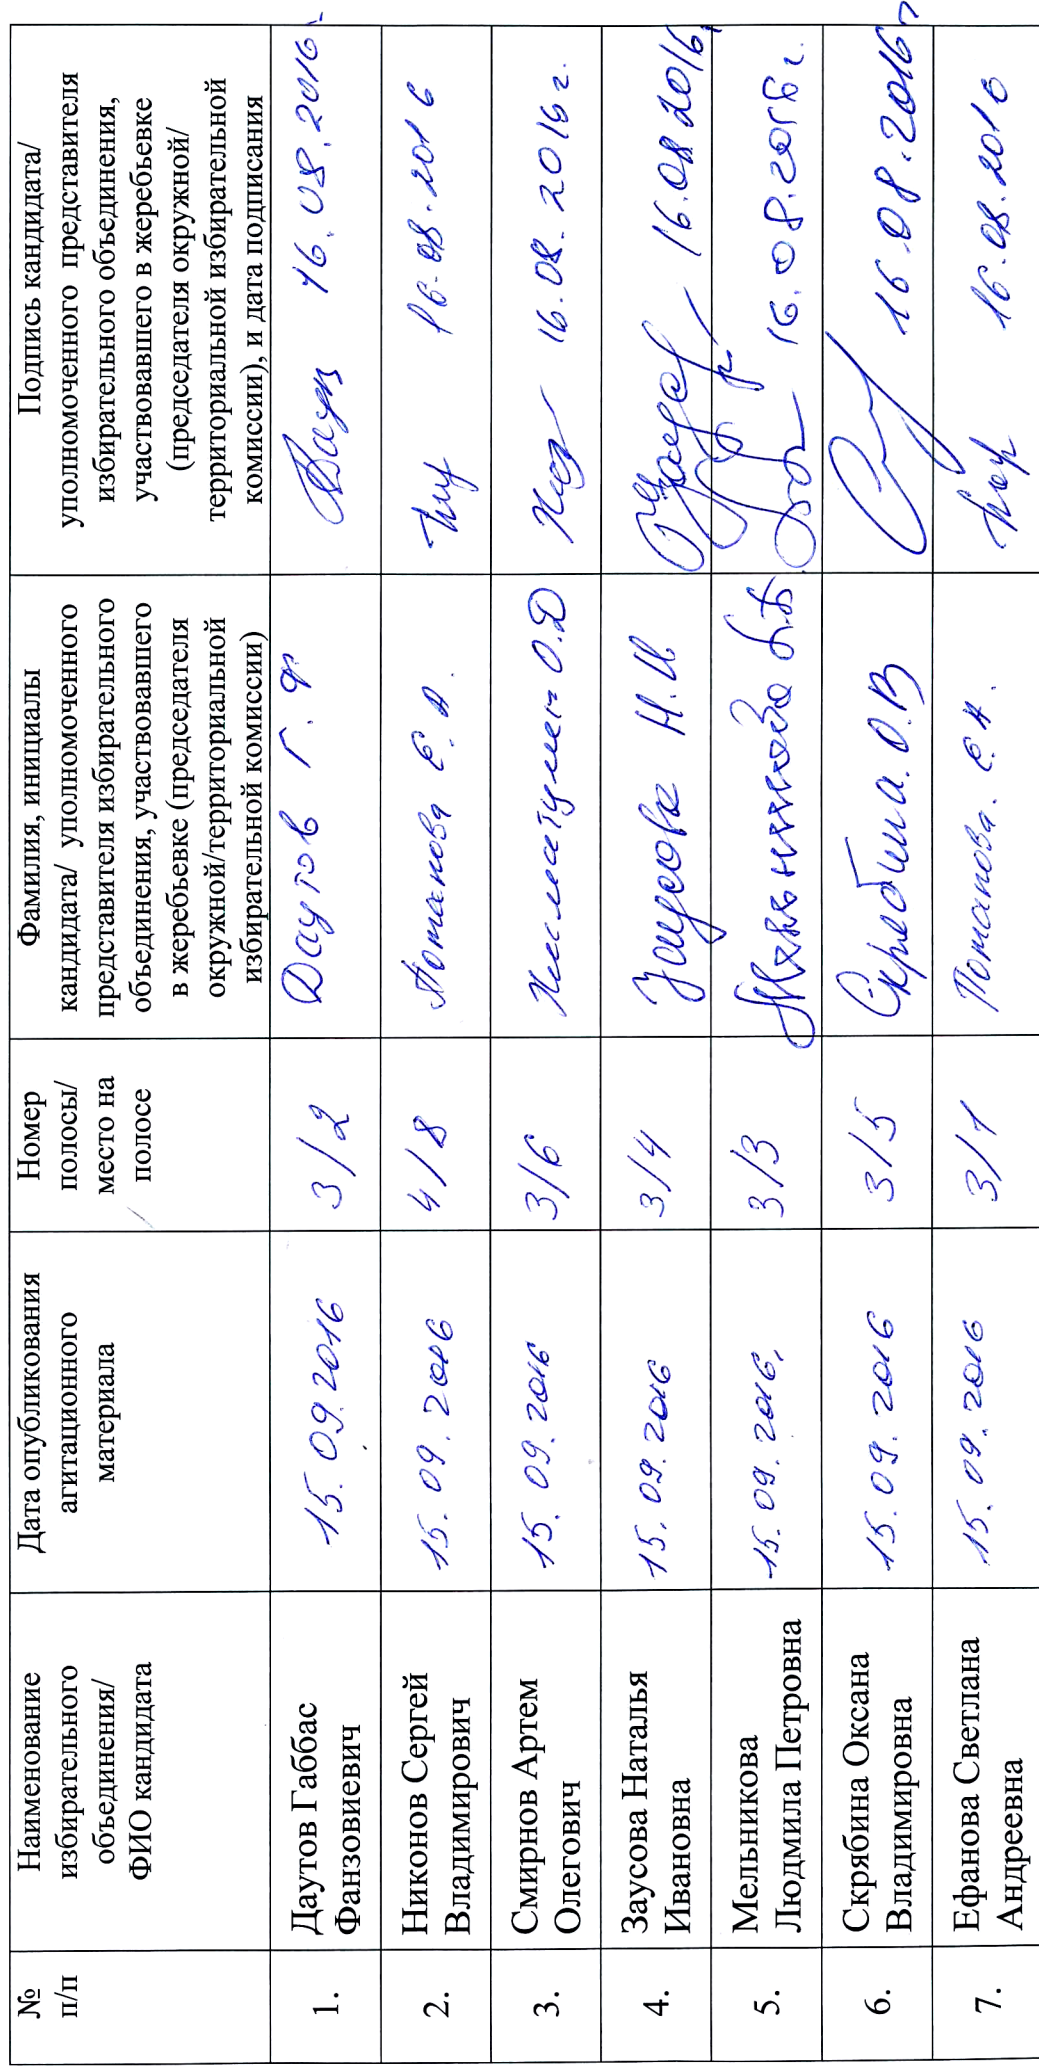 №
п/п
Наименование
избирательного
объединения/
ФИО кандидата
Дата опубликования
агитационного
материала
Номер
полосы/
место на
полосе
Фамилия, инициалы
кандидата/ уполномоченного
представителя избирательного
объединения, участвовавшего
в жеребьевке (председателя
окружной/территориальной
избирательной комиссии)
Подпись кандидата/
уполномоченного представителя
избирательного объединения,
участвовавшего в жеребьевке
(председателя окружной/
территориальной избирательной
комиссии), и дата подписания
1.
Даутов Габбас
Фанзовиевич
15.09.2016
3/2
Даутов Г.Ф
16.08.2016
2.
Никонов Сергей
Владимирович
15.09.2016
4/8
Потанова С.А.
16.08.2016
3.
Смирнов Артем
Олегович
15.09.2016
3/6
О.Д
16.08.2016г.
4.
Заусова Наталья
Ивановна
15.09.2016
3/4
Заусова Н.И
16.08.2016
5.
Мельникова
Людмила Петровна
15.09.2016.
3/3
Мельникова
16.08.2016г.
6.
Скрябина Оксана
Владимировна
15.09.2016
3/5
Скрябина. О.В
16.08.2016г
7.
Ефанова Светлана
Андреевна
15.09.2016
3/1
16.08.2016